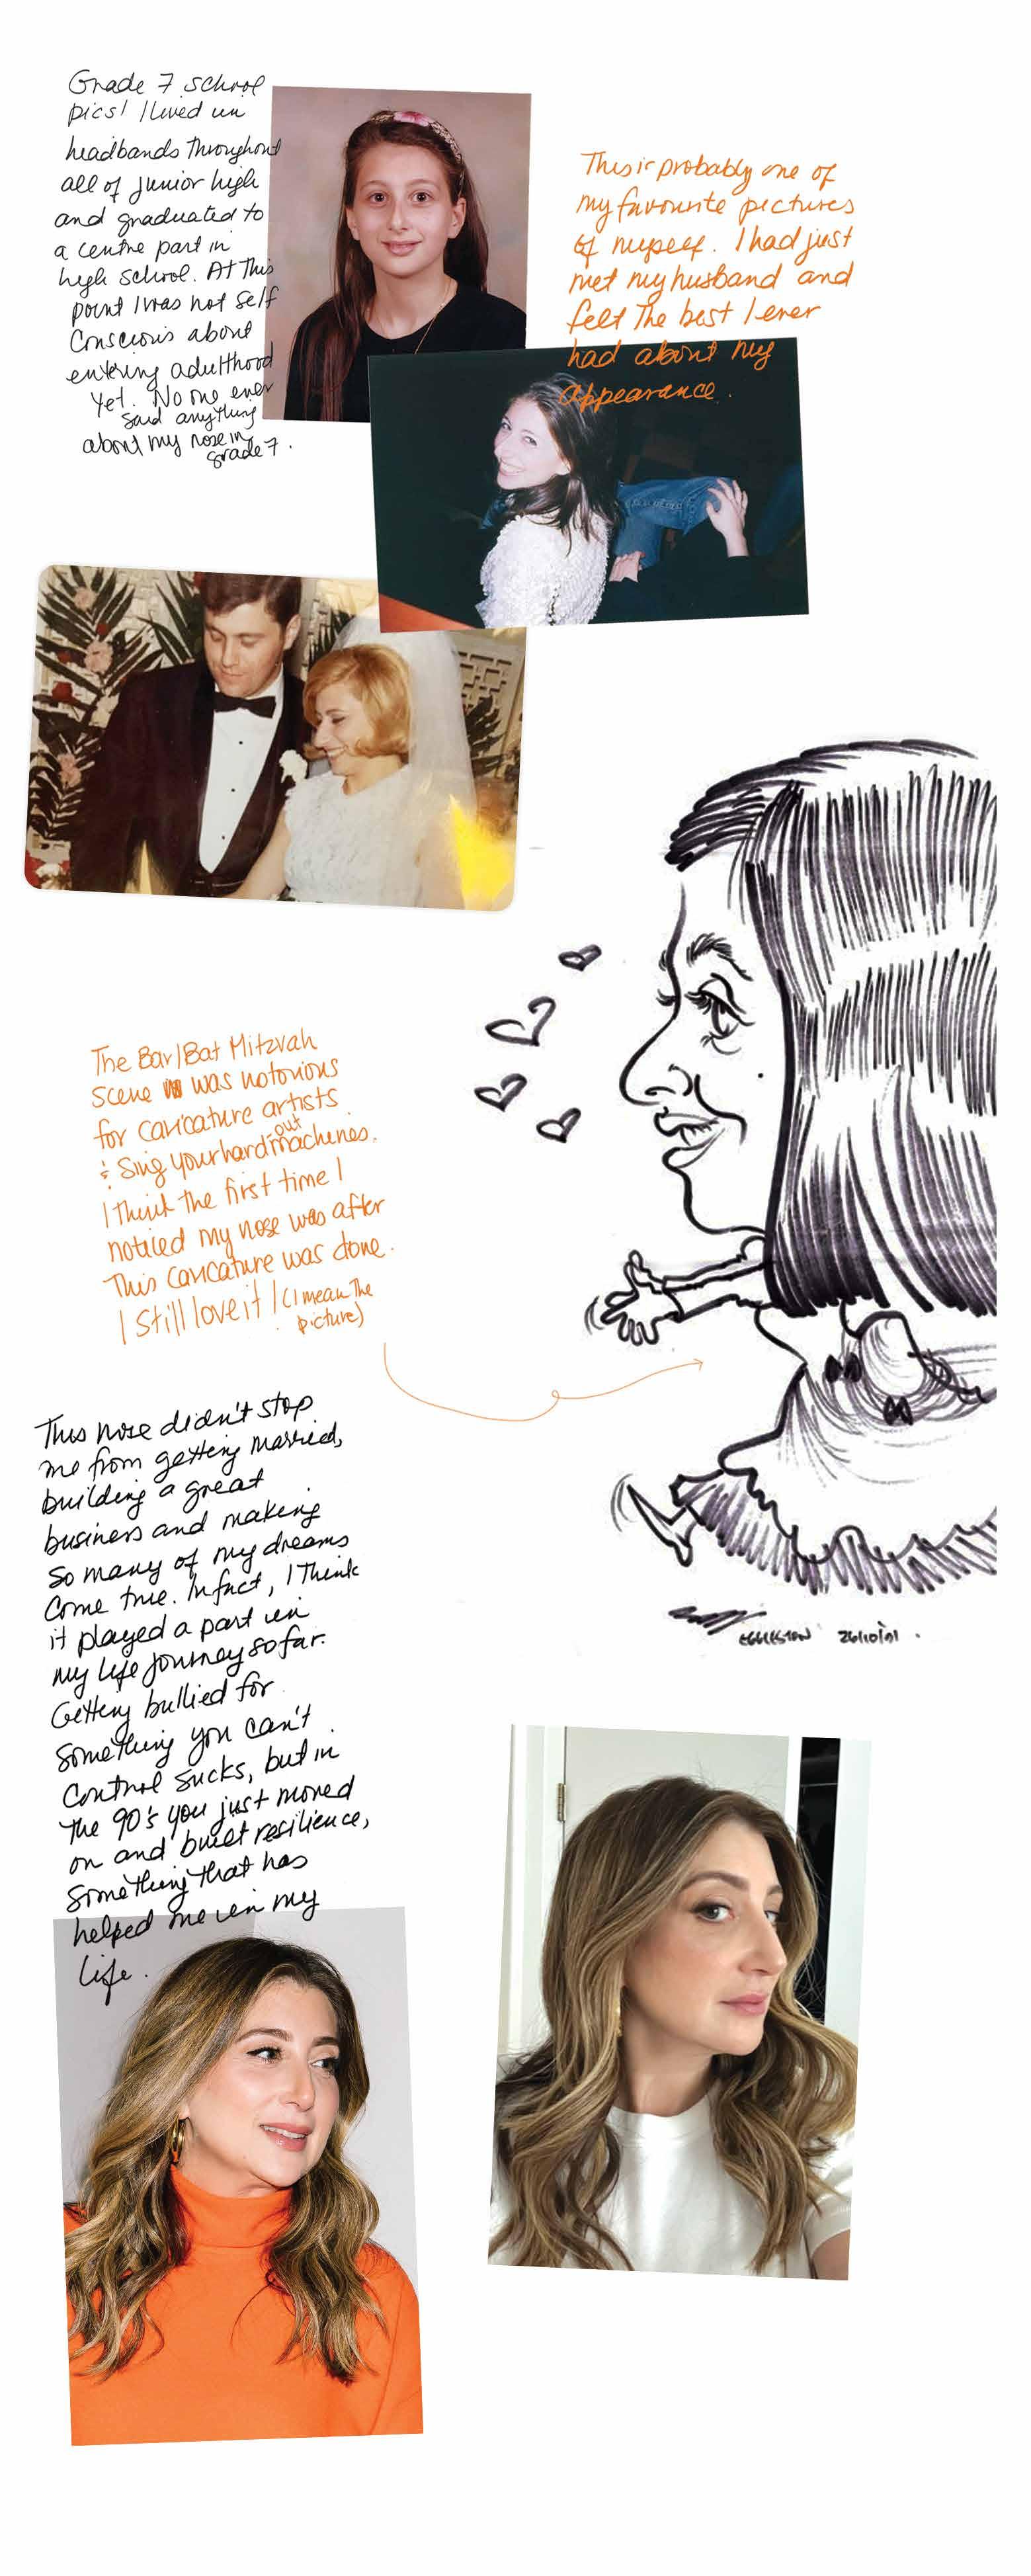 Grade 7 school
pics! I lived in
headbands throughout
all of junior high
and graduated to
a centre part in
high school. At This
point I was not self
conscious about
entering adulthood
yet. No one ever
said anything
about my nose in
grade 7.
This is probably one of
my favourite pictures
of myself. I had just
met my husband and
felt The best I ever
had about my
appearance.
The Bar/Bat Mitzvah
scene was notorious
for caricature artists
& Sing your hard out machines.
I Think the first time I
noticed my nose was after
This caricature was done.
I Still love it! (I mean The
picture)
This nose didn't stop
me from getting married,
building a great
business and making
so many of my dreams
come true. In fact, I Think
it played a part in
my life journey so far.
Getting bullied for
something you can't
control sucks, but in
The 90's you just moved
on and built resilience,
something that has
helped me in my
life.
EGGLESTON 26/10/91.